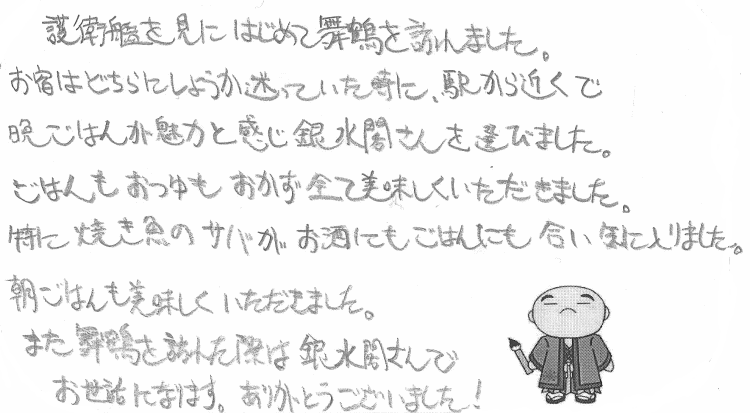 護衛艦を見にはじめて舞鶴を訪れました。
お宿はどちらにしようか迷っていた時に、駅から近くで
晩ごはんが魅力と感じ銀水閣さんを選びました。
ごはんもおつゆもおかず全て美味しくいただきました。
特に焼き魚のサバがお酒にもごはんにも合い気に入りました。
朝ごはんも美味しくいただきました。
また舞鶴を訪れた際は銀水閣さんで
お世話になります。ありがとうございました!